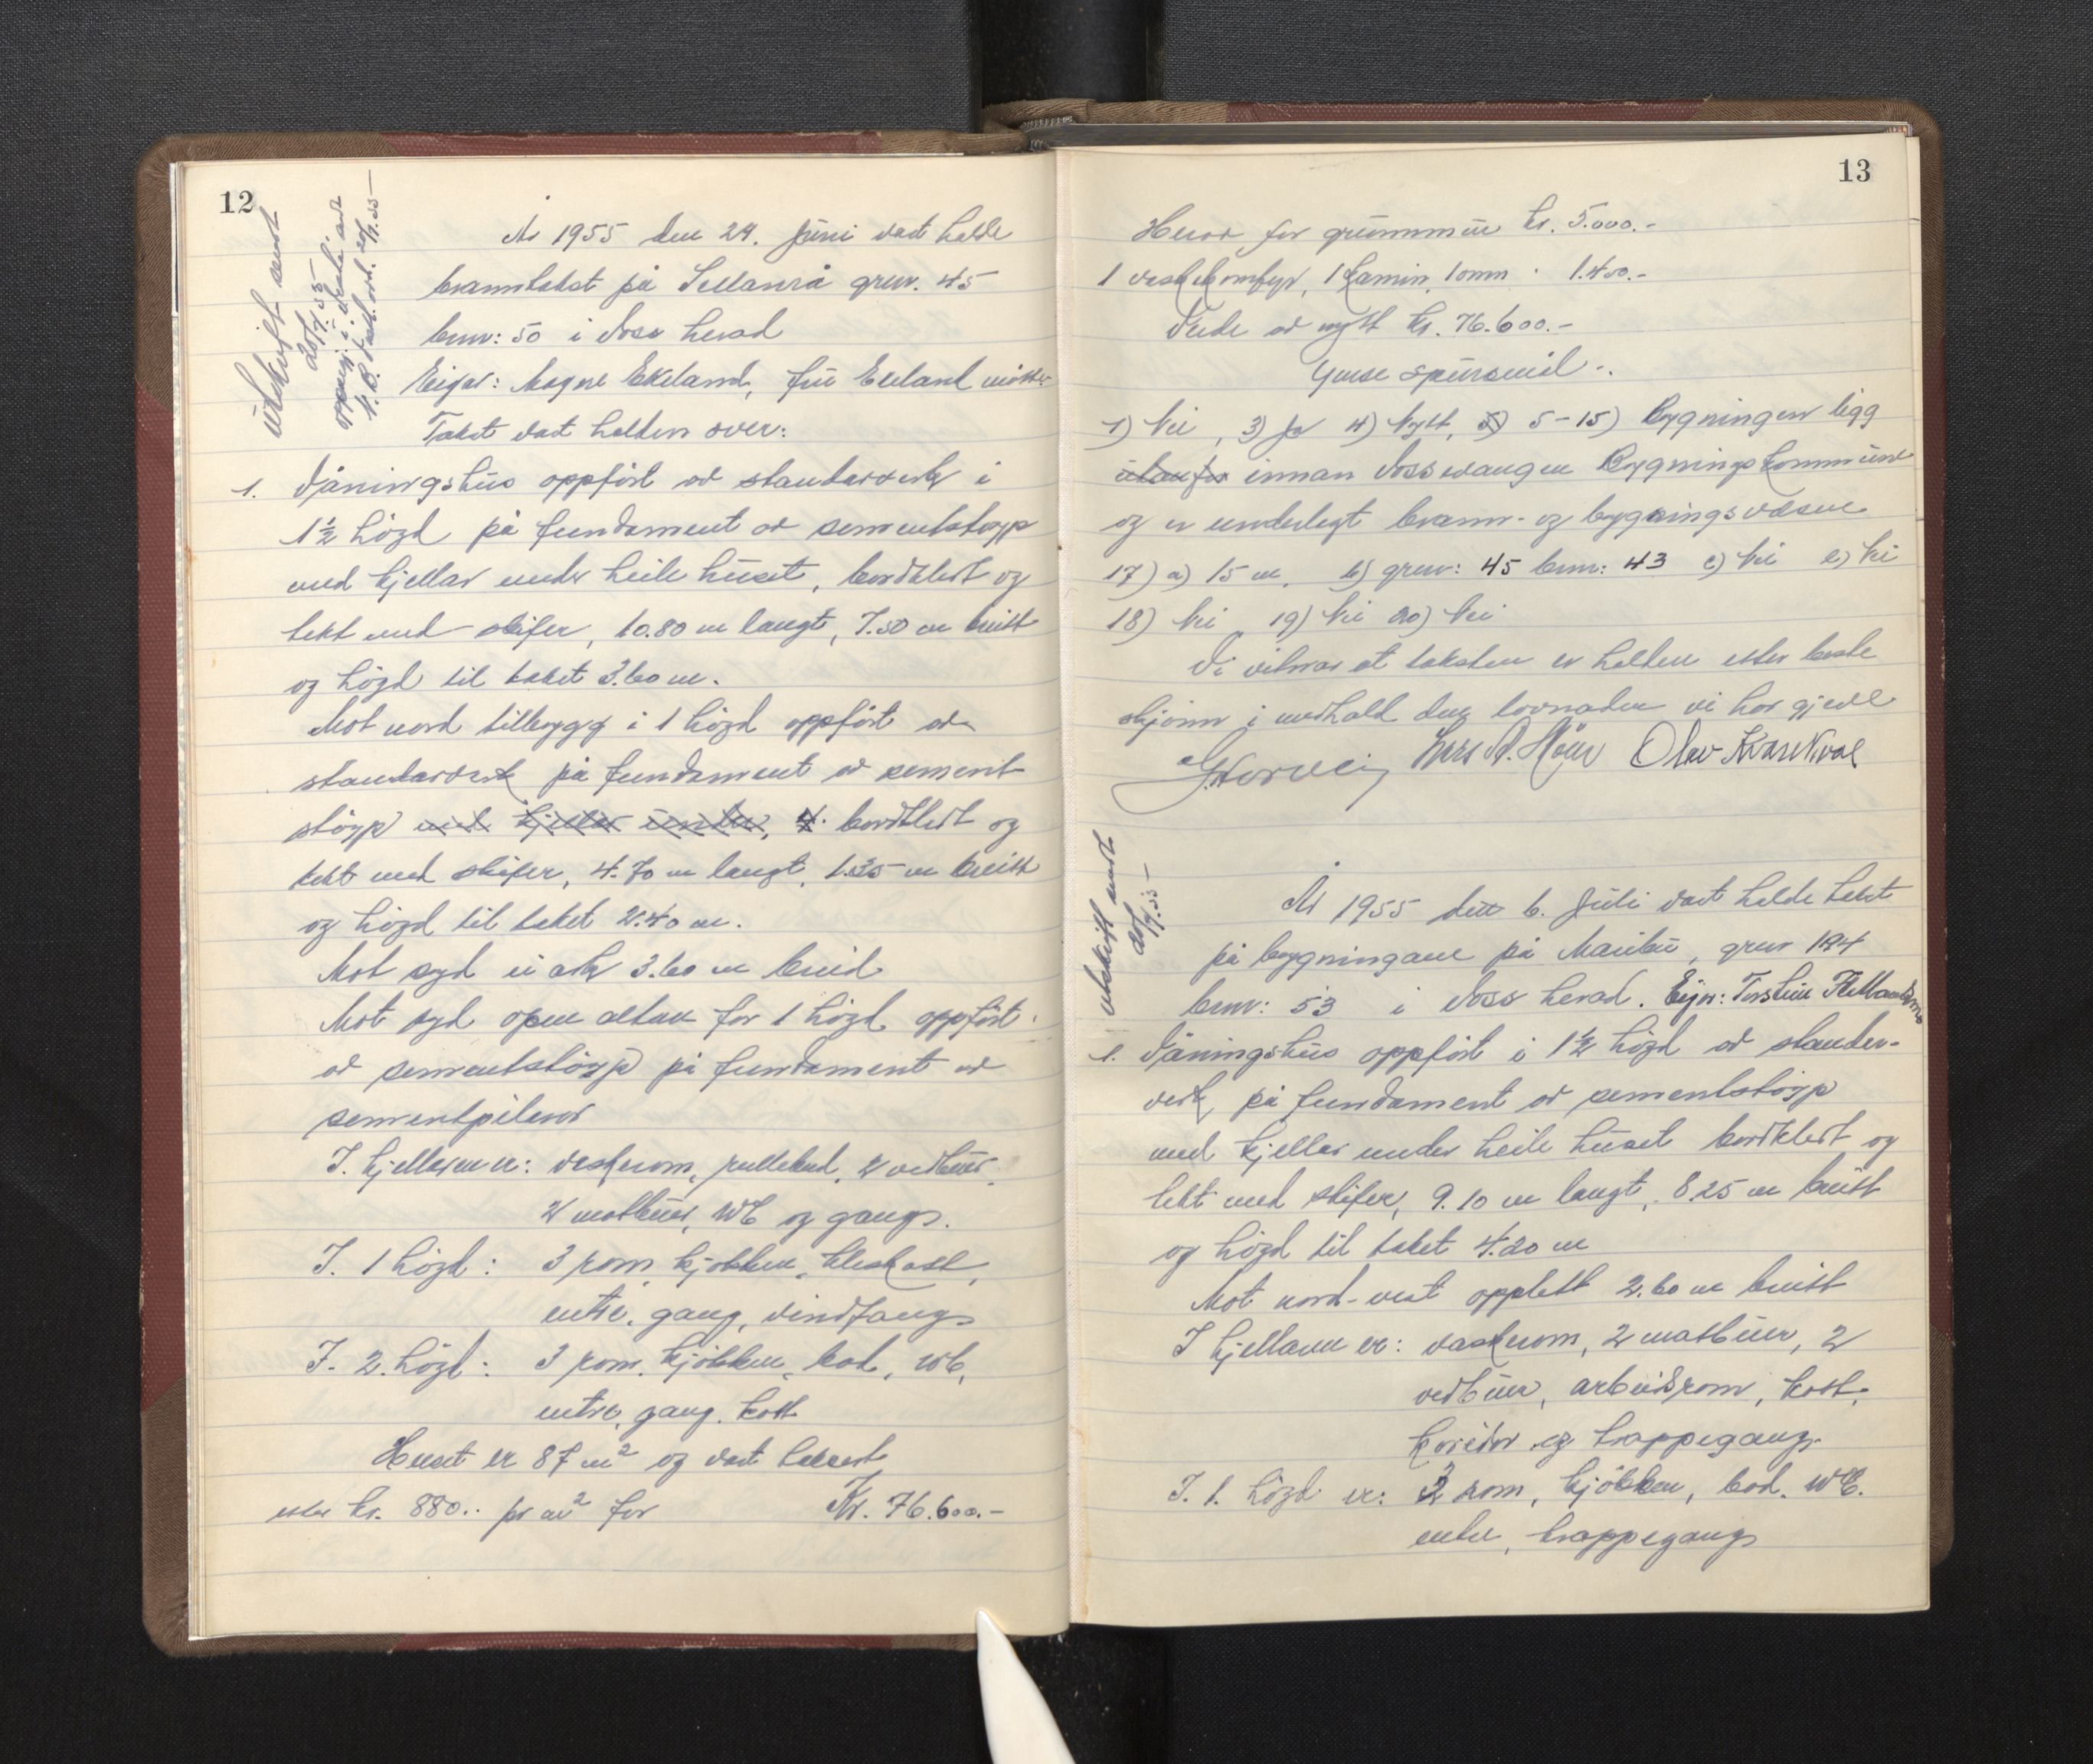 12
Utskrift sendt
20/7.55
År 1955 den 24. juni vart halde
branntakst på Sellanrå grnr. 45
bnr: 50 i Voss herad
Eigar: Magne Ekeland, fru Ekeland møtte
Takst vart halden over:
1. Våningshus oppført av standarverk i
1½ högd på fundament av sementstøyp
med kjellar under heile huset, bordkledt og
tekt med skifer, 10.80 m langt, 7.50 m breitt
og högd til taket 3.60 m.
Mot nord tilbygg i 1 högd oppført av
standarverk på fundament av sement-
støyp med kjellar under, bordkledt og
tekt med skifer, 4.70 m langt, 1.35 m breitt
og högd til taket 2.40 m.
Mot syd ei ark 3.60 m breid
Mot syd open altan for 1 högd oppført
av sementstøyp på fundament av
sementpilarar
I. kjellaren er: vaskerom, rullebod, 2 vedbuer,
2 matbuer, WC og gang.
I. 1 högd: 3 rom, kjøkken, kleskott,
entre, gang, vindfang
I. 2. högd: 3 rom, kjøkken, bad, WC,
entre, gang, kott
Huset er 87 m² og vart taksert
etter kr. 880.- pr m² for Kr. 76.600.-
13
Herav for grunnmur kr. 5.000.-
1 vaskekomfyr, 1 kamin, 1 omn " 1.400.-
Verde av nytt kr. 76.600.-
Ymse spursmål:
1) Nei, 3) Ja 4) Nytt, 5) 5-15) Bygningen ligg
utanfor innan Vossevangen Bygningskommune
og er underlagt brann- og bygningsvæsene
17) a) 15 m, b) grnr: 45 bnr: 43 c) Nei e) Nei
18) Nei 19) Nei 20) Nei
Vi vitnar at taksten er halden etter beste
skjønn i medhald den lovnaden vi har gjeve
Utskrift sendt
20/7.55
År 1955 den 6. juli vart halde takst
på bygningane på Maribu, grnr 184
bnr: 53 i Voss herad. Eigar: Torstein
1. Våningshus oppført i 1½ högd av stander-
verk på fundament av sementstøyp
med kjellar under heile huset bordkledt og
tekt med skifer, 9.10 m langt, 8.25 m breitt
og högd til taket 4.20 m
Mot nord-vest opplett 2.60 m breitt
I kjellaren er: vaskerom, 2 matbuer, 2
vedbuer, arbeidsrom, kott,
koridor og trappegang.
I. 1. högd er: 3 rom, kjøkken, bad, WC.
entre, trappegang